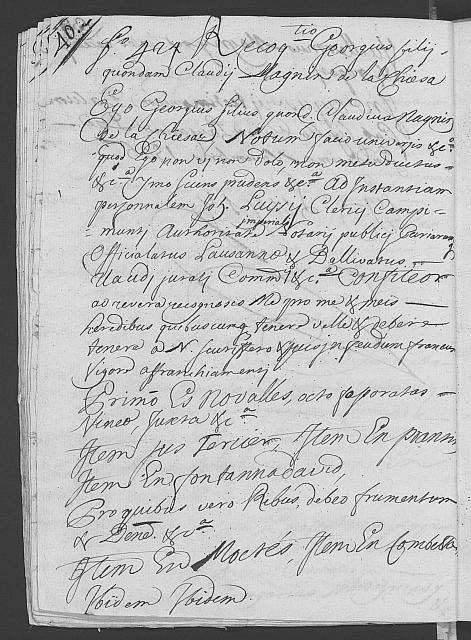 402
fo. 424 Recogtio Georgius filij
quondam Claudij Magnin de la Chiesa
Ego Georgius filius quond. Claudius Magnin
de la Chiesaz Notum facio universis &ca
quod Ego non vi non dolo, non metu ductus
&ca Ymo sciens prudens &ca Ad Instantiam
personnalem Clerici Campi-
munij Authoritate imperiali Notarij publici
Officialatus Lausannæ & Ballivatus
Vaudi jurati Commis &ca Confiteor
ac revera recognosco Me pro me & meis
heredibus quibuscunq tenere velle & debere
tenere à N. in feudum francum
Vigore affranchiamentj
Primò Es Novalles, octo faporatas
Vineæ Juxta &ca
Item sus Tercier, Item En
Item En fontanna david,
Pro quibus vero Rebus, debeo frumentum
& Dene. &ca
Item En Moctés, Item En Combettaz
Ibidem Ibidem.